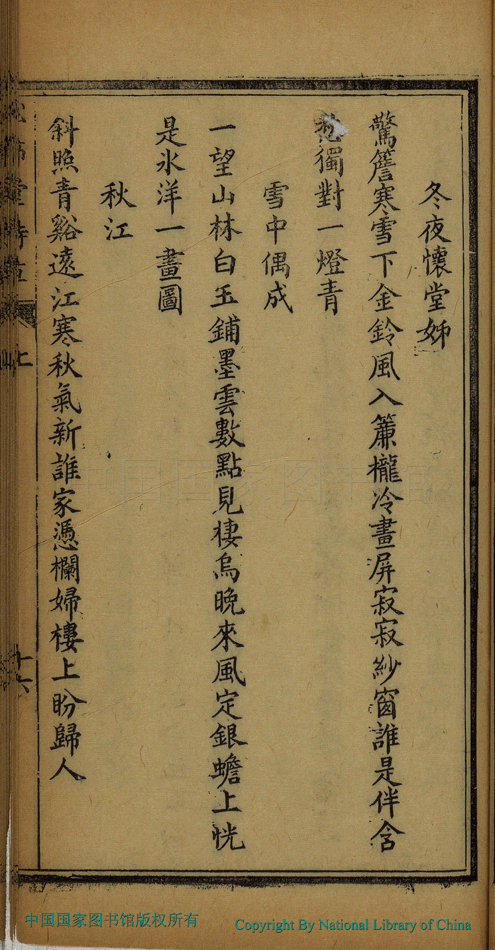 冬夜懷堂姊
驚簷寒雪下金鈴風入簾櫳冷畫屏寂寂紗窗誰是伴含
愁獨對一燈青
雪中偶成
一望山林白玉鋪墨雲數點見棲烏晚來風定銀蟾上恍
是氷洋一畫圖
秋江
斜照青谿遠江寒秋氣新誰家憑欄婦樓上盼歸人
上
十六
中国国家图书馆版权所有
Copyright By National Library of China